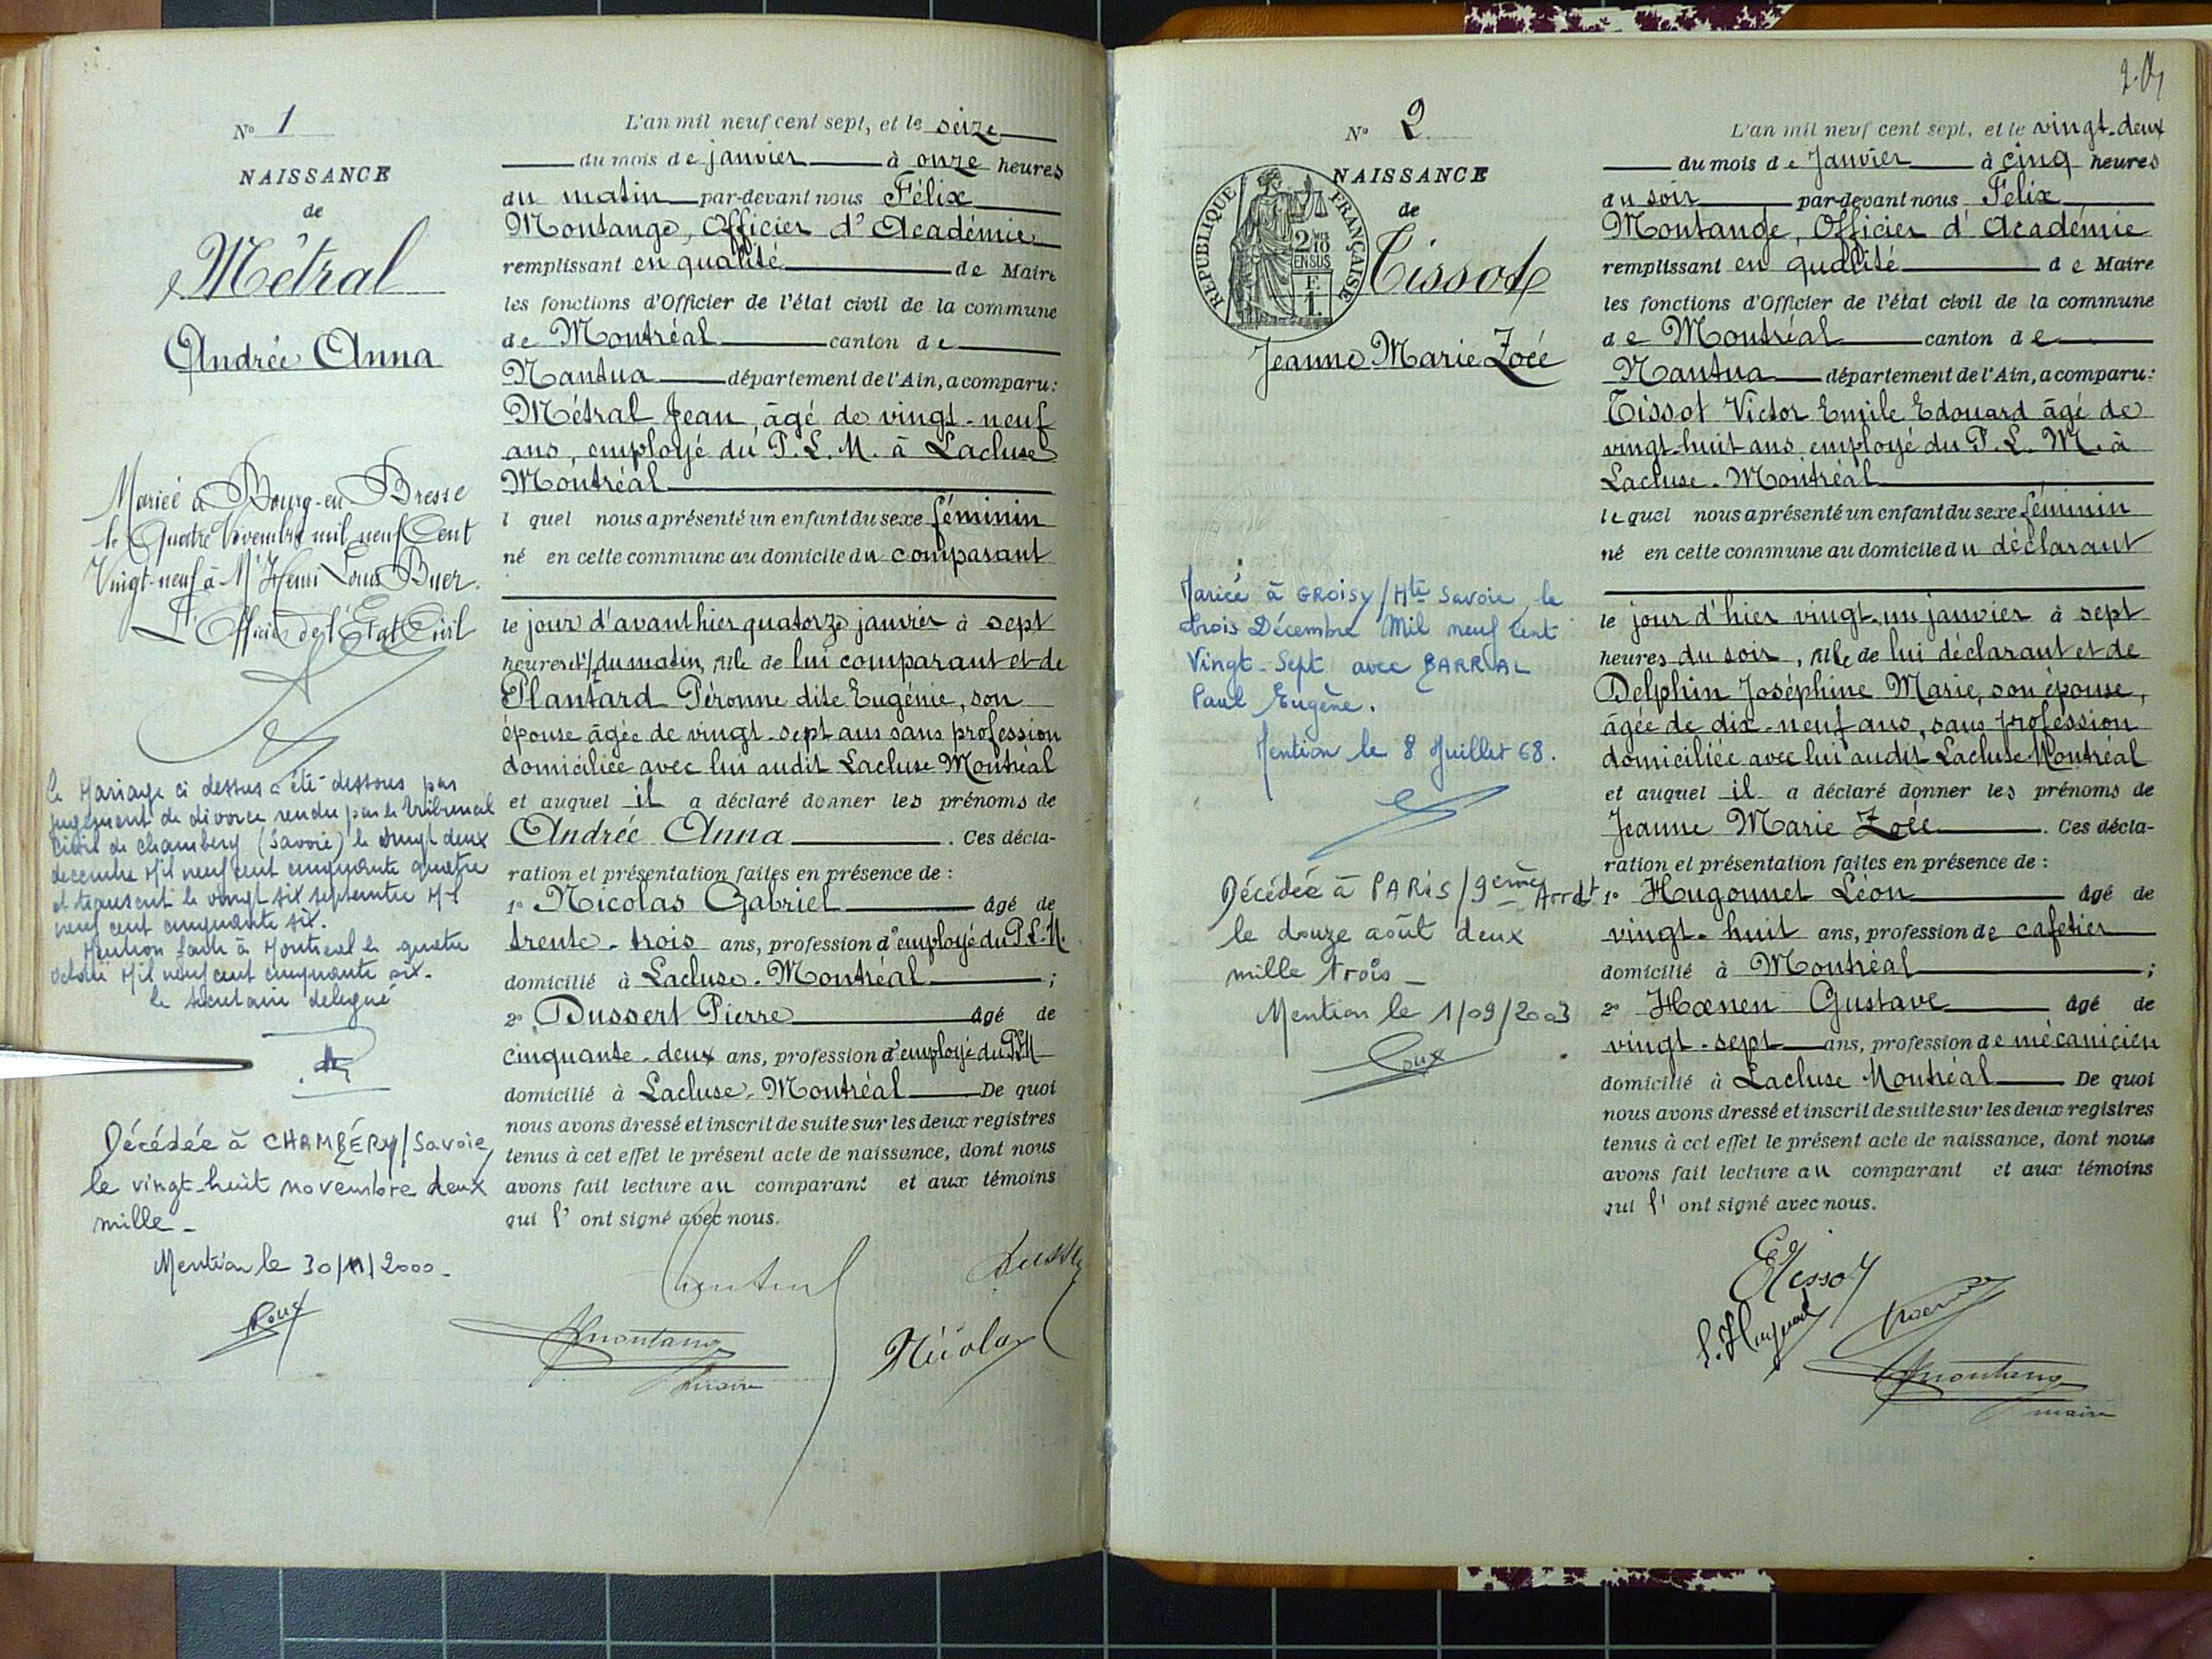 N° 1
NAISSANCE
de
Métral
Andrée Anna
Mariée à Bourg-en-Bresse
le Quatre Novembre mil neuf Cent
Vingt-neuf à Mr Henri Louis Buer.
L'Officier de l'Etat Civil
le Mariage ci dessus a été dessous par
jugement de divorce rendu par le tribunal
civil de Chambery (Savoie) le vingt deux
decembre Mil neuf cent cinquante quatre
et transcrit le vingt six septembre Mil
neuf cent cinquante six.
Mention faite à Montreal le quatre
octobre Mil neuf cent cinquante six.
le secretaire delegué
Décédée à CHAMBÉRY/Savoie,
le vingt-huit novembre deux
mille_
Mention le 30/11/2000_
Roux
L'an mil neuf cent sept, et le seize
du mois de janvier à onze heures
du matin par-devant nous Félix
Montange, Officier d'Académie
remplissant en qualité de Maire
les fonctions d'Officier de l'état civil de la commune
de Montréal canton de
Nantua département de l'Ain, a comparu:
Métral Jean, âgé de vingt-neuf
ans, employé du P.L.M. à Lacluse
Montréal
l quel nous a présenté un enfant du sexe féminin
né en cette commune au domicile du comparant
le jour d'avant hier quatorze janvier à sept
heures et ½ du matin, fille de lui comparant et de
Plantard Péronne dite Eugénie, son
épouse âgée de vingt-sept ans sans profession
domiciliée avec lui audit Lacluse Montréal
et auquel il a déclaré donner les prénoms de
Andrée Anna . Ces décla-
ration et présentation faites en présence de :
1° Nicolas Gabriel âgé de
trente-trois ans, profession d'employé du P.L.M.
domicilié à Lacluse-Montréal ;
2° Dussert Pierre âgé de
cinquante-deux ans, profession d'employé du PLM
domicilié à Lacluse-Montréal De quoi
nous avons dressé et inscrit de suite sur les deux registres
tenus à cet effet le présent acte de naissance, dont nous
avons fait lecture au comparant et aux témoins
qui l' ont signé avec nous.
Montange
maire
Nicolas
N° 2
NAISSANCE
de
RÉPUBLIQUE FRANÇAISE
2/10
EN SUS
F.
1.
Tissot
Jeanne Marie Zoée
Mariée à GROISY/Hte Savoie, le
trois Décembre Mil neuf cent
Vingt-Sept avec BARRAL
Paul Eugène.
Mention le 8 Juillet 68.
Décédée à PARIS/9ème Arrdt
le douze août deux
mille trois_
Mention le 1/09/2003
Roux
L'an mil neuf cent sept, et le vingt-deux
du mois de Janvier à cinq heures
du soir par-devant nous Félix
Montange, Officier d'Académie
remplissant en qualité de Maire
les fonctions d'Officier de l'état civil de la commune
de Montréal canton de
Nantua département de l'Ain, a comparu:
Tissot Victor Emile Edouard âgé de
vingt-huit ans employé du P.L.M. à
Lacluse-Montréal
lequel nous a présenté un enfant du sexe féminin
né en cette commune au domicile du déclarant
le jour d'hier vingt-un janvier à sept
heures du soir, fille de lui déclarant et de
Delphin Joséphine Marie, son épouse,
âgée de dix-neuf ans, sans profession
domiciliée avec lui audit Lacluse-Montréal
et auquel il a déclaré donner les prénoms de
Jeanne Marie Zoée . Ces décla-
ration et présentation faites en présence de :
1° Hugonnet Léon âgé de
vingt-huit ans, profession de cafetier
domicilié à Montréal ;
2° Hœnen Gustave âgé de
vingt-sept ans, profession de mécanicien
domicilié à Lacluse Montréal De quoi
nous avons dressé et inscrit de suite sur les deux registres
tenus à cet effet le présent acte de naissance, dont nous
avons fait lecture au comparant et aux témoins
qui l' ont signé avec nous.
ETissot
L. Hugonnet
Montange
maire